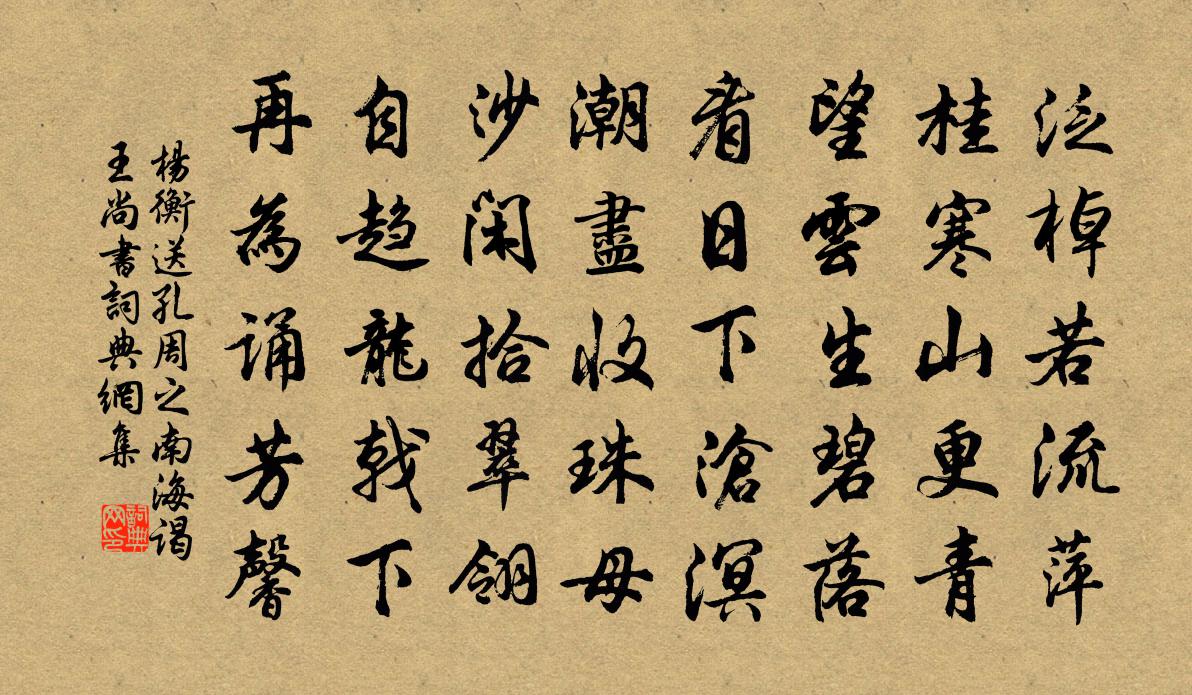 泛棹若流萍
桂寒山更青
望雲生碧落
看日下滄溟
潮盡收珠母
沙閑拾翠翎
自趨龍戟下
再為誦芳馨
楊衡送孔周之南海謁
王尚書詞典網集
詞典网印